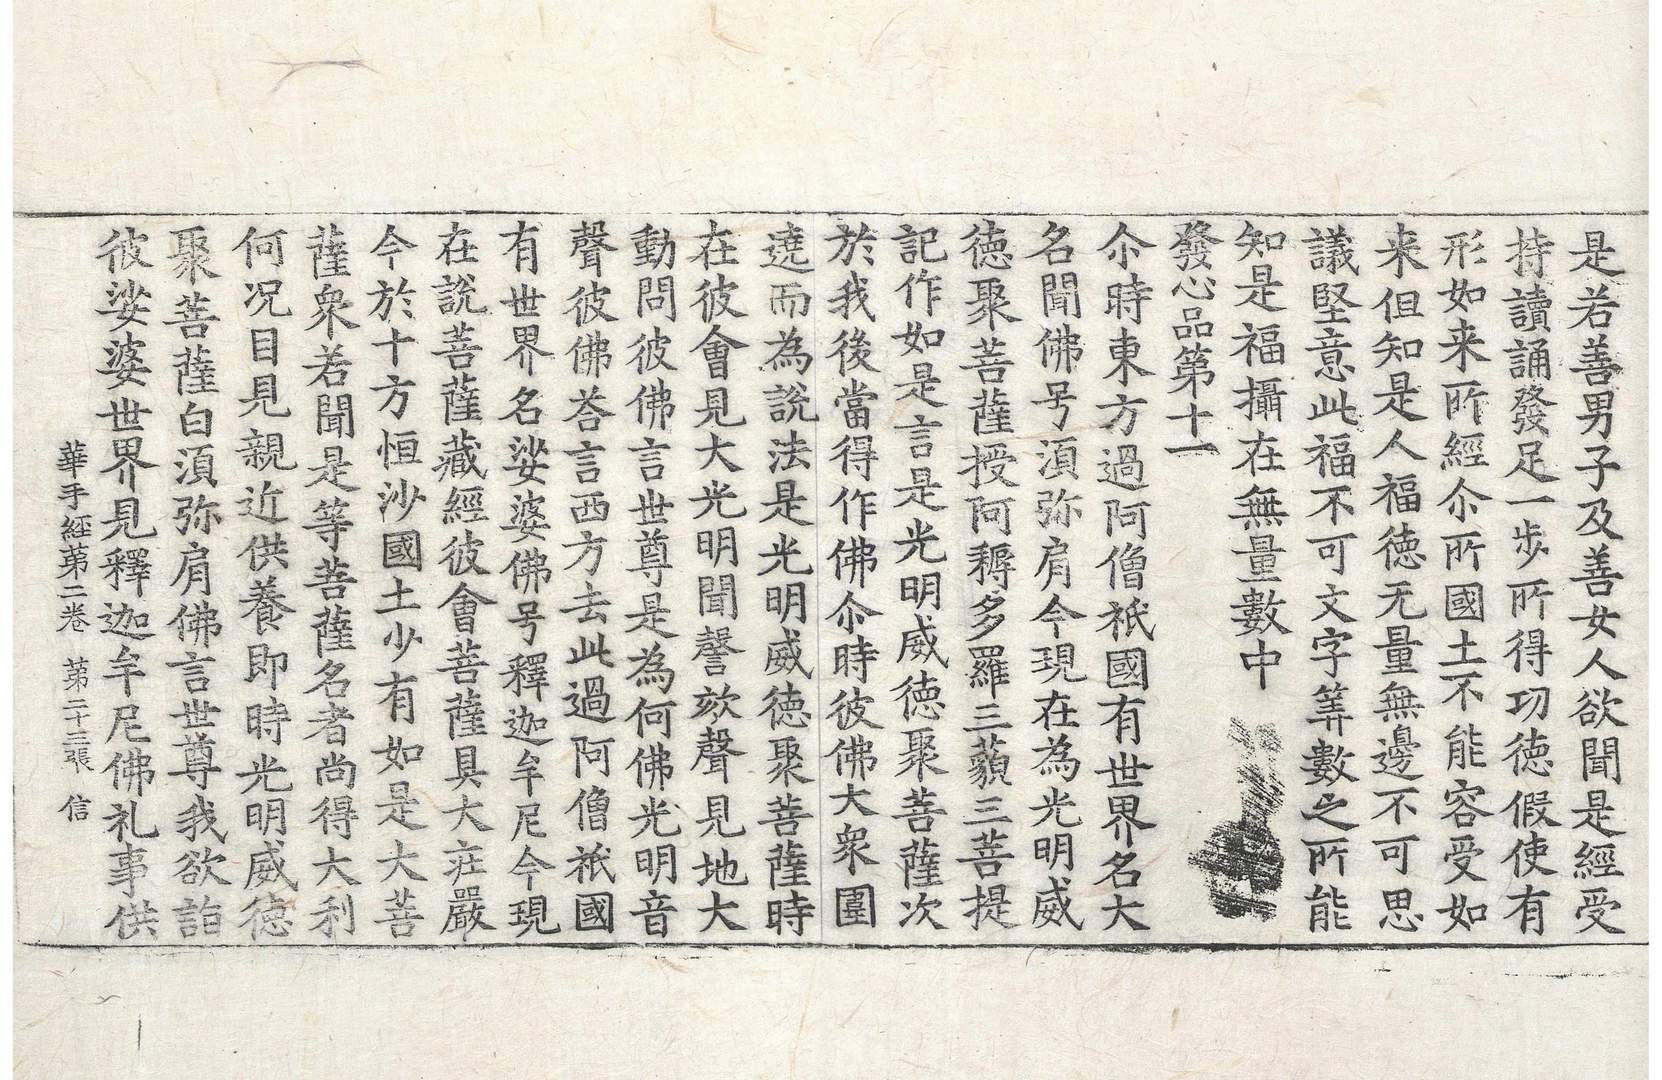 是若善男子及善女人欲聞是經受
持讀誦發足一步所得功德假使有
形如来所經尒所國土不能容受如
来但知是人福德无量無邊不可思
議堅意此福不可文字筭數之所能
知是福攝在無量數中
發心品第十一
尒時東方過阿僧祇國有世界名大
名聞佛号湏弥肩今現在為光明威
德聚菩薩授阿耨多羅三藐三菩提
記作如是言是光明威德聚菩薩次
於我後當得作佛尒時彼佛大衆圍
遶而為說法是光明威德聚菩薩時
在彼會見大光明聞謦欬聲見地大
動問彼佛言世尊是為何佛光明音
聲彼佛荅言西方去此過阿僧祇國
有世界名娑婆佛号釋迦牟尼今現
在說菩薩藏經彼會菩薩具大庄嚴
今於十方恒沙國土少有如是大菩
薩衆若聞是等菩薩名者尚得大利
何况目見親近供養即時光明威德
聚菩薩白湏弥肩佛言世尊我欲詣
彼娑婆世界見釋迦牟尼佛礼事供
華手經第二卷 第二十三張 信